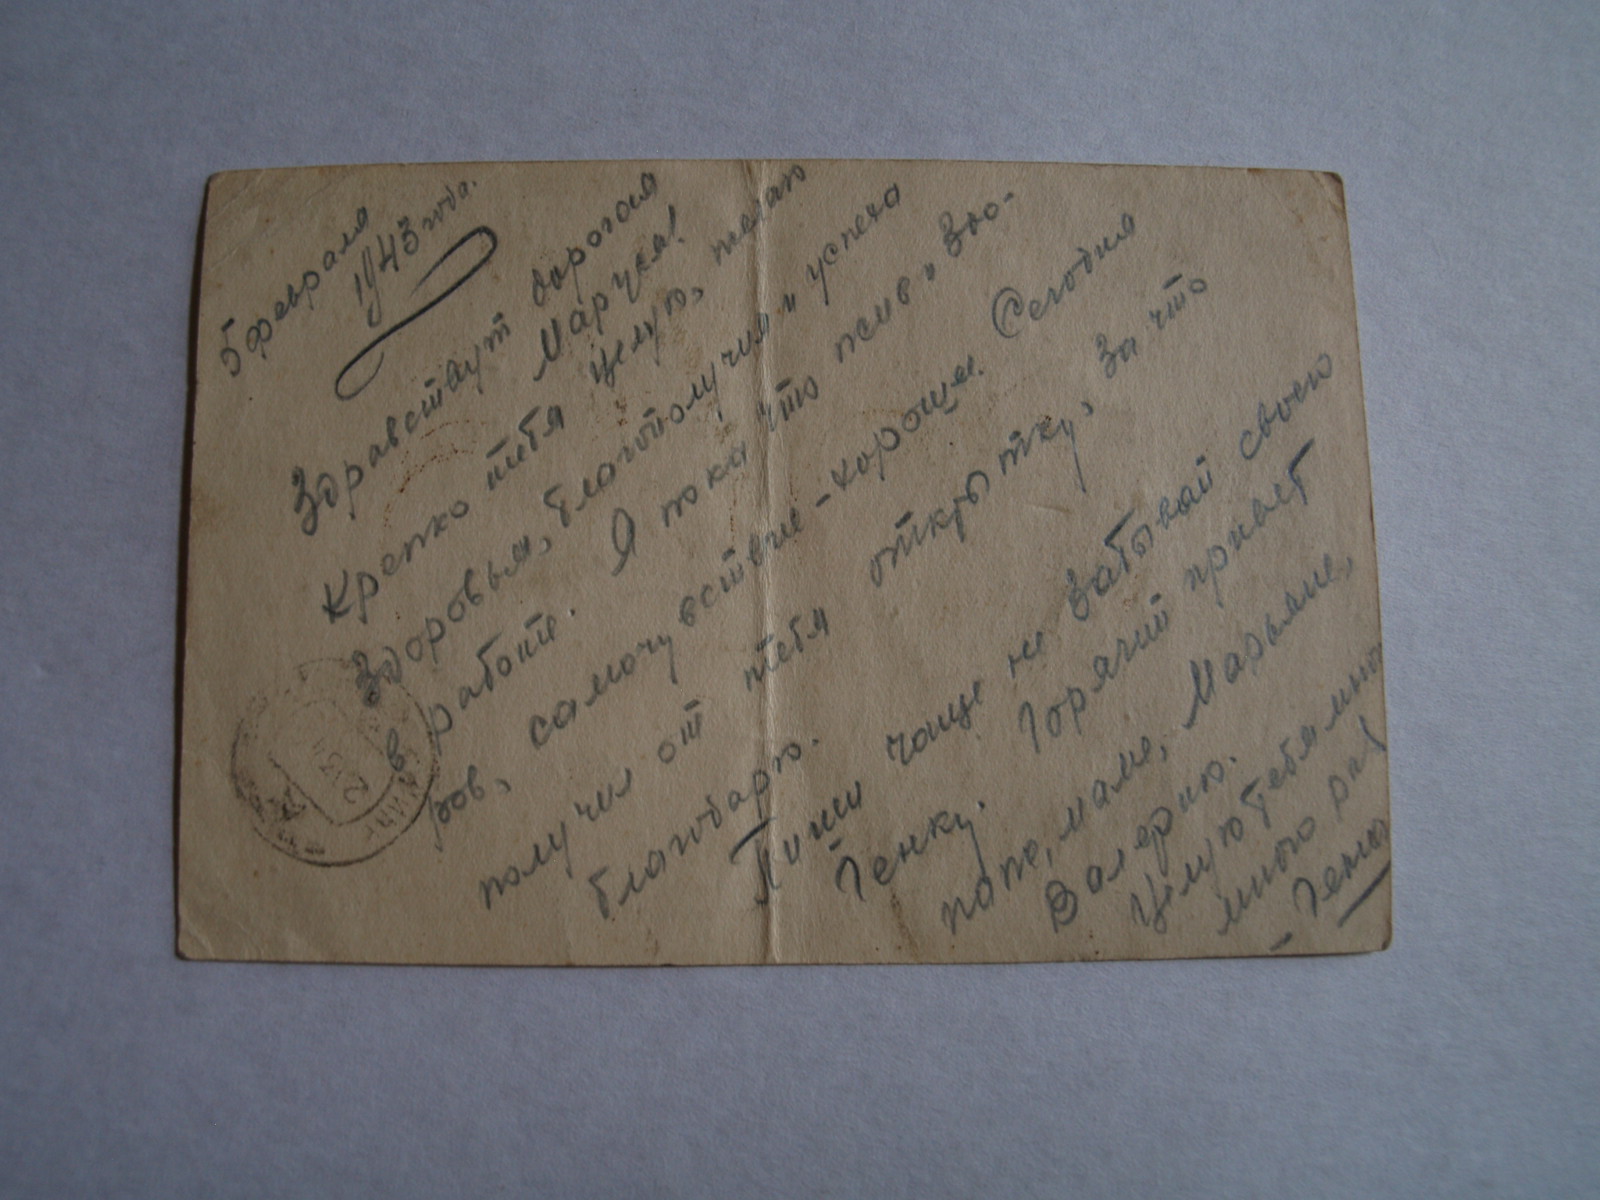 5 февраля
1943 года.
Здравствут дорогая
Маруся!
Крепко тебя целую, желаю
здоровья, благополучия и успеха
в работе. Я пока что жив и здо-
ров, самочувствие - хорошее. Сегодня
получил от тебя открытку, за что
благодарю.
Пиши чаще не забывай своего
Генку. Горячий привет
папе, маме, Марьяне,
Валерию.
Целую тебя мно
много раз
- Гена